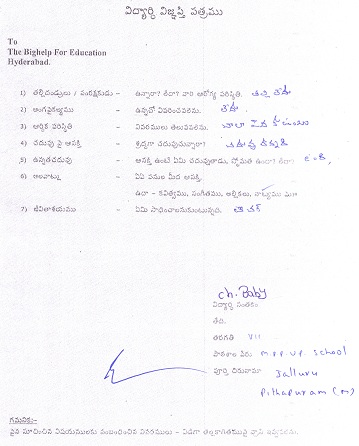 విద్యార్థి విజ్ఞప్తి పత్రము
To
The Bighelp For Education
Hyderabad.
1) తల్లిదండ్రులు / సంరక్షకుడు - ఉన్నారా? లేదా? వారి ఆరోగ్య పరిస్థితి. తల్లి లేదు
2) అంగవైకల్యము - ఉన్నచో వివరించవలెను. లేదు
3) ఆర్థిక పరిస్థితి - వివరములు తెలుపవలెను. చాలా పేద కుటుంబం
4) చదువు పై ఆసక్తి - శ్రద్ధగా చదువుచున్నారా?
5) ఉన్నతచదువు - ఆసక్తి ఉంటే ఏమి చదువుతాడు, స్తోమత ఉందా? లేదా?
6) అలవాట్లు - ఏఏ పనుల మీద ఆసక్తి.
ఉదా - కవిత్వము, సంగీతము, అల్లికలు, నాట్యము
7) జీవితాశయము - ఏమి సాధించాలనుకుంటున్నది. టీచర్
ch. Baby
విద్యార్థి సంతకం
తేది.
తరగతి VII
పాఠశాల పేరు M.P.P. U.P. School
పూర్తి చిరునామా Jalluru
Pithapuram (M)
గమనిక:-
పైన సూచించిన విషయములకు సంబంధించిన వివరములు - విడిగా తెల్లకాగితముపై వ్రాసి ఇవ్వవలెను.